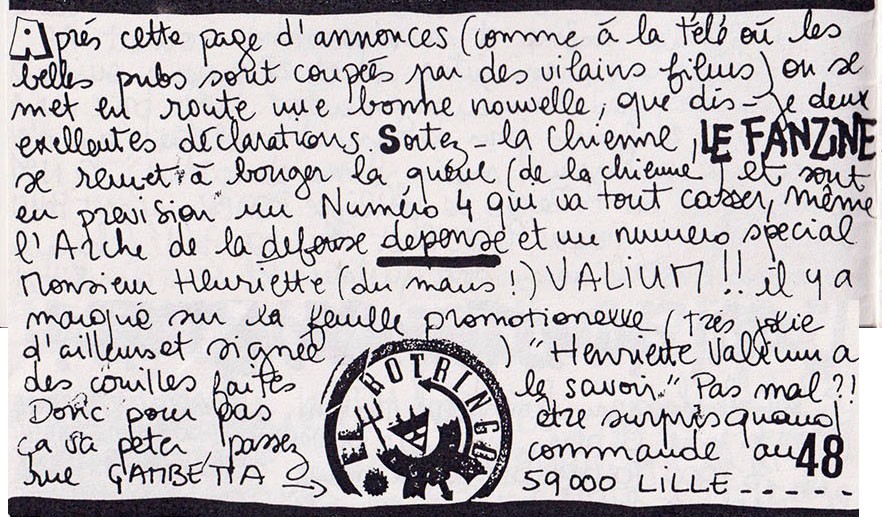 Après cette page d'annonces (comme à la télé où les
belles pubs sont coupées par des vilains films) on se
met en route une bonne nouvelle, que dis-je deux
exellentes déclarations. Sortez-la Chienne, LE FANZINE
se remet à bouger la queue (de la chienne) et sont
en prevision un Numéro 4 qui va tout casser, même
l'Arche de la defense deponse et un numero special
Monsieur Henriette (du mans!) VALIUM!! il y a
marqué sur la feuille promotionelle (très jolie
d'ailleurs et signée ) "Henriette Valium a
des couilles faites le savoir." Pas mal?!
Donc pour pas être surpris quand
ça va peter passez commande au 48
rue GAMBETTA → 59000 LILLE-----
EL ROTRINGO